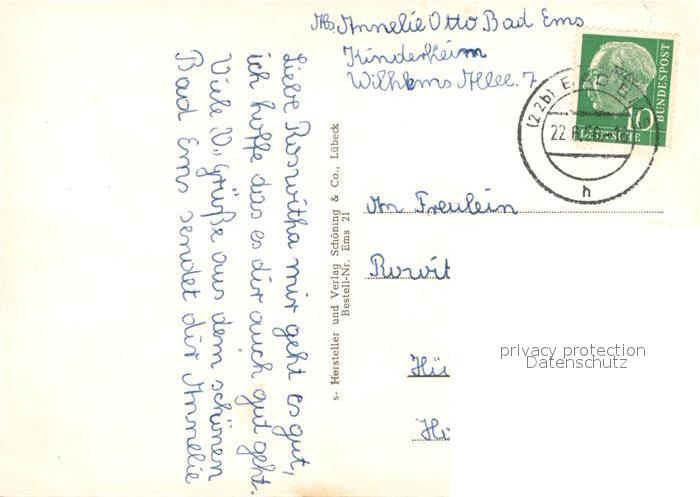 Abs. Annelie Otto Bad Ems
Kinderheim
Wilhlems Allee. 7
Liebe Roswitha mir geht es gut,
ich hoffe das es dir auch gut geht.
Viele V., Grüße aus dem schönen
Bad Ems sendet dir Annelie
s- Hersteller und Verlag Schöning & Co., Lübeck
Bestell-Nr. Ems 21
10
DEUTSCHE
BUNDESPOST
(22b)
22
h
An Freulein
Roswit
Hü
privacy protection
Datenschutz